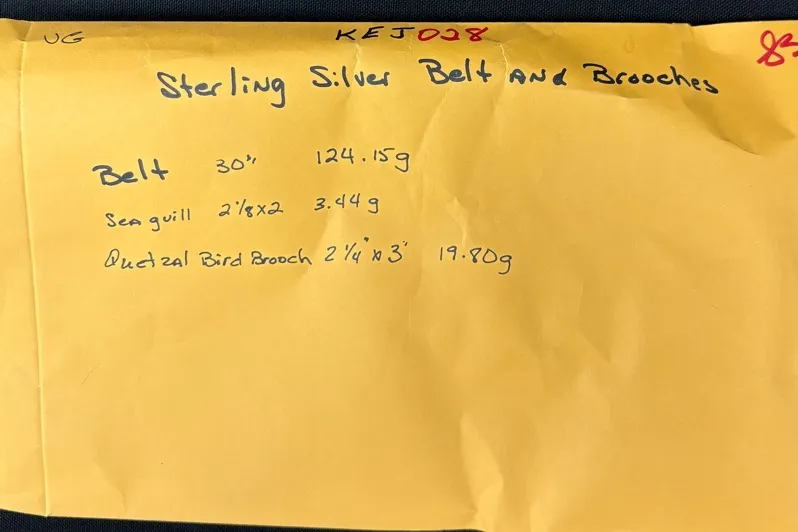 UG KEJ028
Sterling Silver Belt AND Brooches
Belt 30" 124.15g
Sea guill 2 1/8x2 3.44g
Quetzal Bird Brooch 2 1/4" x 3" 19.80g